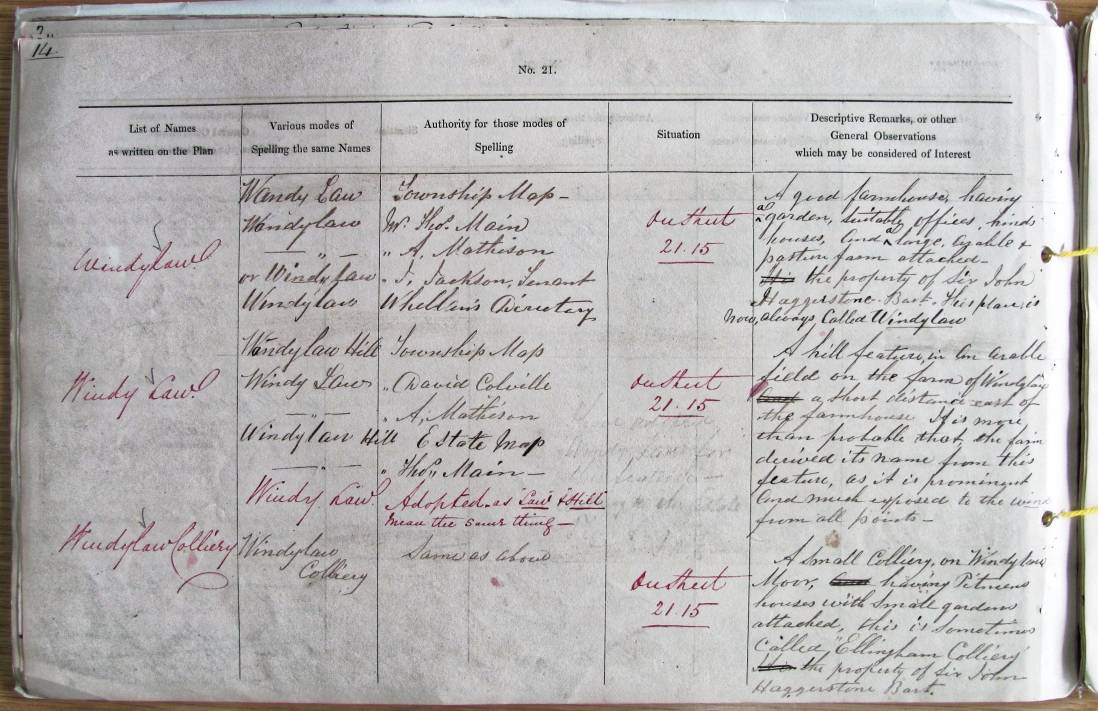 2
14
No. 21.
List of Names
as written on the Plan
Various modes of
Spelling the same Names
Authority for those modes of
Spelling
Situation
Descriptive Remarks, or other
General Observations
which may be considered of Interest
Windylaw
Wandy Law
Wandylaw
— " —
or Windy Law
Windylaw
Township Map –
Mr. Thos. Main
" A. Mathison
" T. Jackson, Tenant
Whellin's Directory
On Sheet
21.15
A good farmhouse, having
a garden, suitable offices, hinds
houses, and a large arable &
pasture farm attached –
the property of Sir John
Haggerstone Bart. This place is
now, always Called Windylaw
Windy Law
Wandylaw Hill
Windy Law
— " —
Windylaw Hill
— " —
Windy Law
Township Map
" David Colville
" A. Mathison
Estate Map
" Thos. Main –
Adopted as "Law" & Hill
mean the same thing –
On Sheet
21.15
A hill feature, in an arable
field on the farm of Windylaw
a short distance east of
the farmhouse It is more
than probable that the farm
derived its name from this
feature, as it is prominent
and much exposed to the wind
from all points –
Windylaw Colliery
Windylaw
Colliery
Same as above
On Sheet
21.15
A Small Colliery, on Windylaw
Moor, having Pitmens
houses with small gardens
attached, this is sometimes
Called "Ellingham Colliery"
the property of Sir John
Haggerstone Bart.